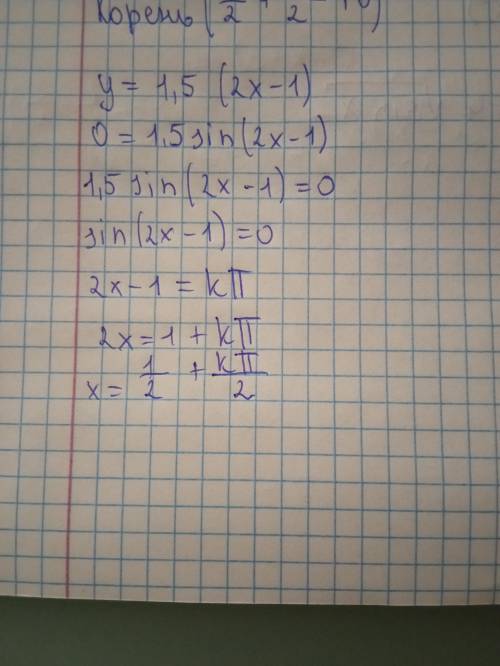 Корень (
y = 1,5 (2x-1)
0 = 1,5 sin(2x-1)
1,5 sin(2x-1)=0
sin(2x-1)=0
2x-1 = kπ
2x=1+kπ
x= 1/2 + kπ/2